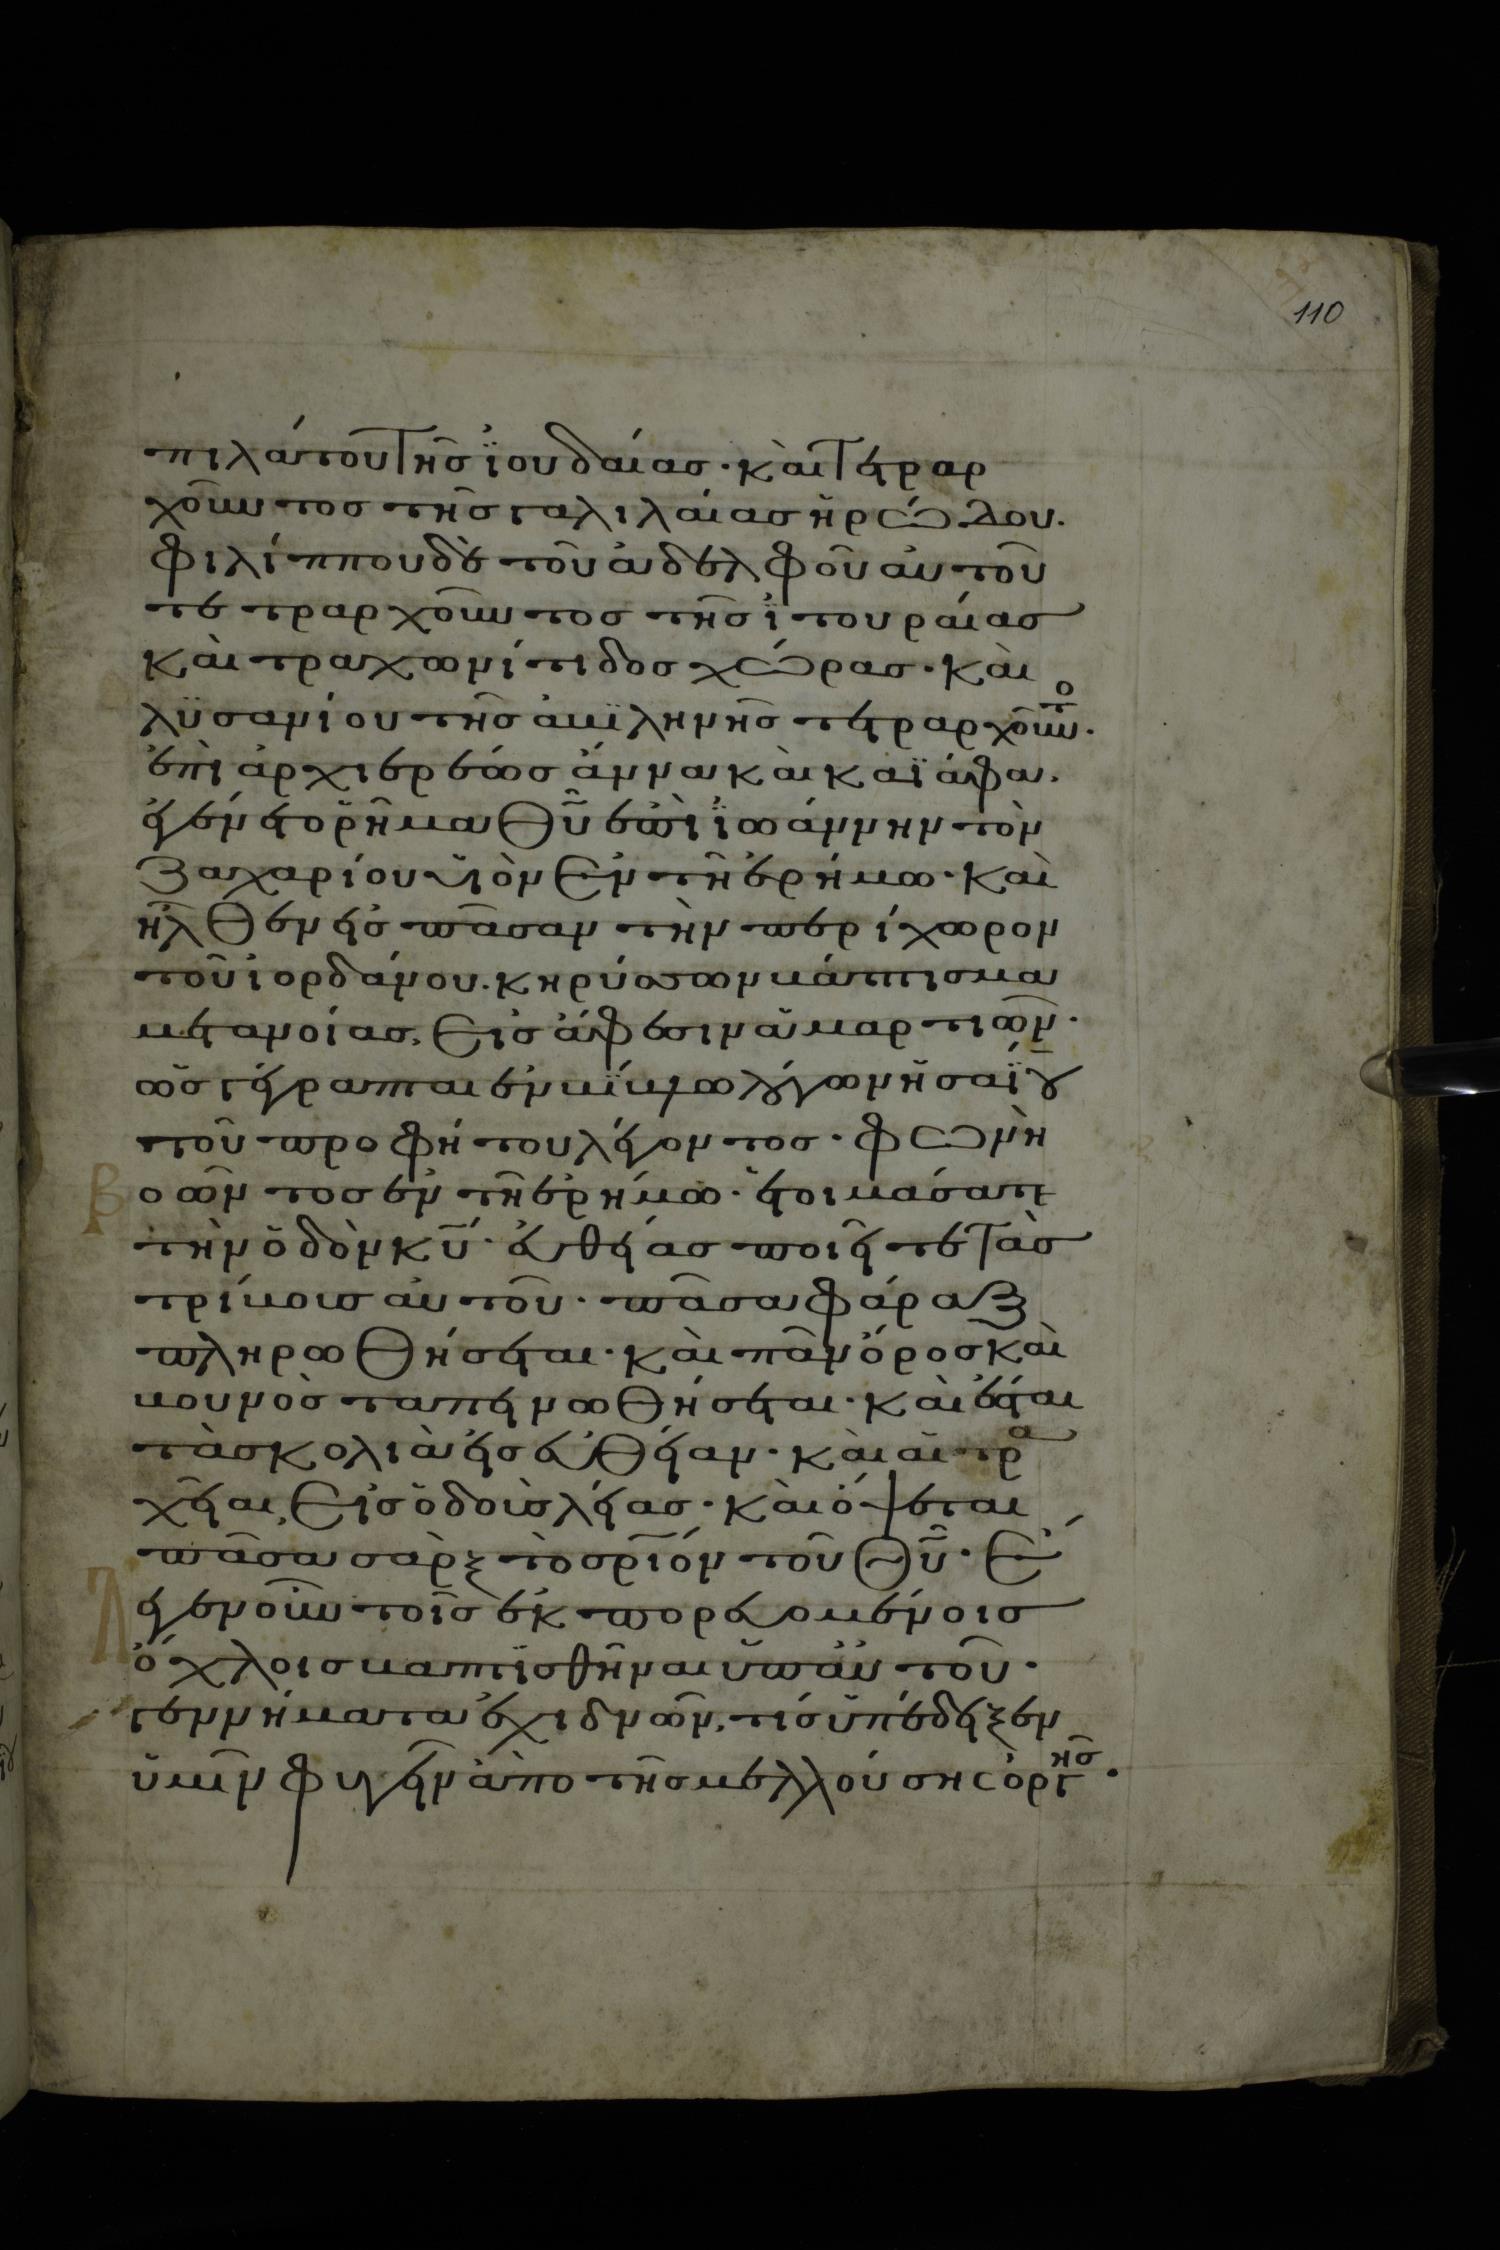 110
πιλάτου τῆς ἰουδαίας· καὶ τετραρ
χοῦντος τῆς γαλιλαίας ἡρώδου.
φιλίππου δὲ τοῦ ἀδελφοῦ αὐτοῦ
τετραρχοῦντος τῆς ἰτουραίας
καὶ τραχωνίτιδος χώρας· καὶ
λϋσανίου τῆς ἀβϊληνῆς τετραρχοῦντο·
ἐπὶ ἀρχιερέως ἄννα καὶ καϊάφα.
ἐγένετο ῥῆμα θῦ ἐπὶ ἰωάννην τὸν
ζαχαρίου υἱὸν ἐν τῆ ἐρήμω· καὶ
ἦλθεν εἰς πᾶσαν τὴν περίχωρον
τοῦ ἰορδάνου. κηρύσσων βάπτισμα
μετανοίας, εἰς ἄφεσιν ἁμαρτιῶν·
ὡς γέγραπται ἐν βίβλω λόγων ἡσαΐου
τοῦ προφήτου λέγοντος· φωνὴ
βοῶντος ἐν τῆ ἐρήμω· ἑτοιμάσατε
τὴν ὁδὸν κυ· εὐθείας ποιεῖτε τὰς
τρίβους αὐτοῦ· πᾶσα φάραξ
πληρωθήσεται· καὶ πᾶν ὄρος καὶ
βουνὸς ταπεινωθήσεται· καὶ ἔσται
τὰ σκολιὰ εἰς εὐθεῖαν· καὶ αἱ τρα
χεῖαι, εἰς ὁδοὺς λείας· καὶ ὄψεται
πᾶσα σὰρξ τὸ σριον τοῦ θυ· Ἔ
λεγεν οὖν τοῖς ἐκπορευομένοις
ὄχλοις βαπτϊσθῆναι ὑπ᾽ αὐτοῦ·
γεννήματα ἐχιδνῶν, τίς ὑπέδειξεν
ὑμῖν φυγεῖν ἀπὸ τῆς μελλούσης ὀργῆς·